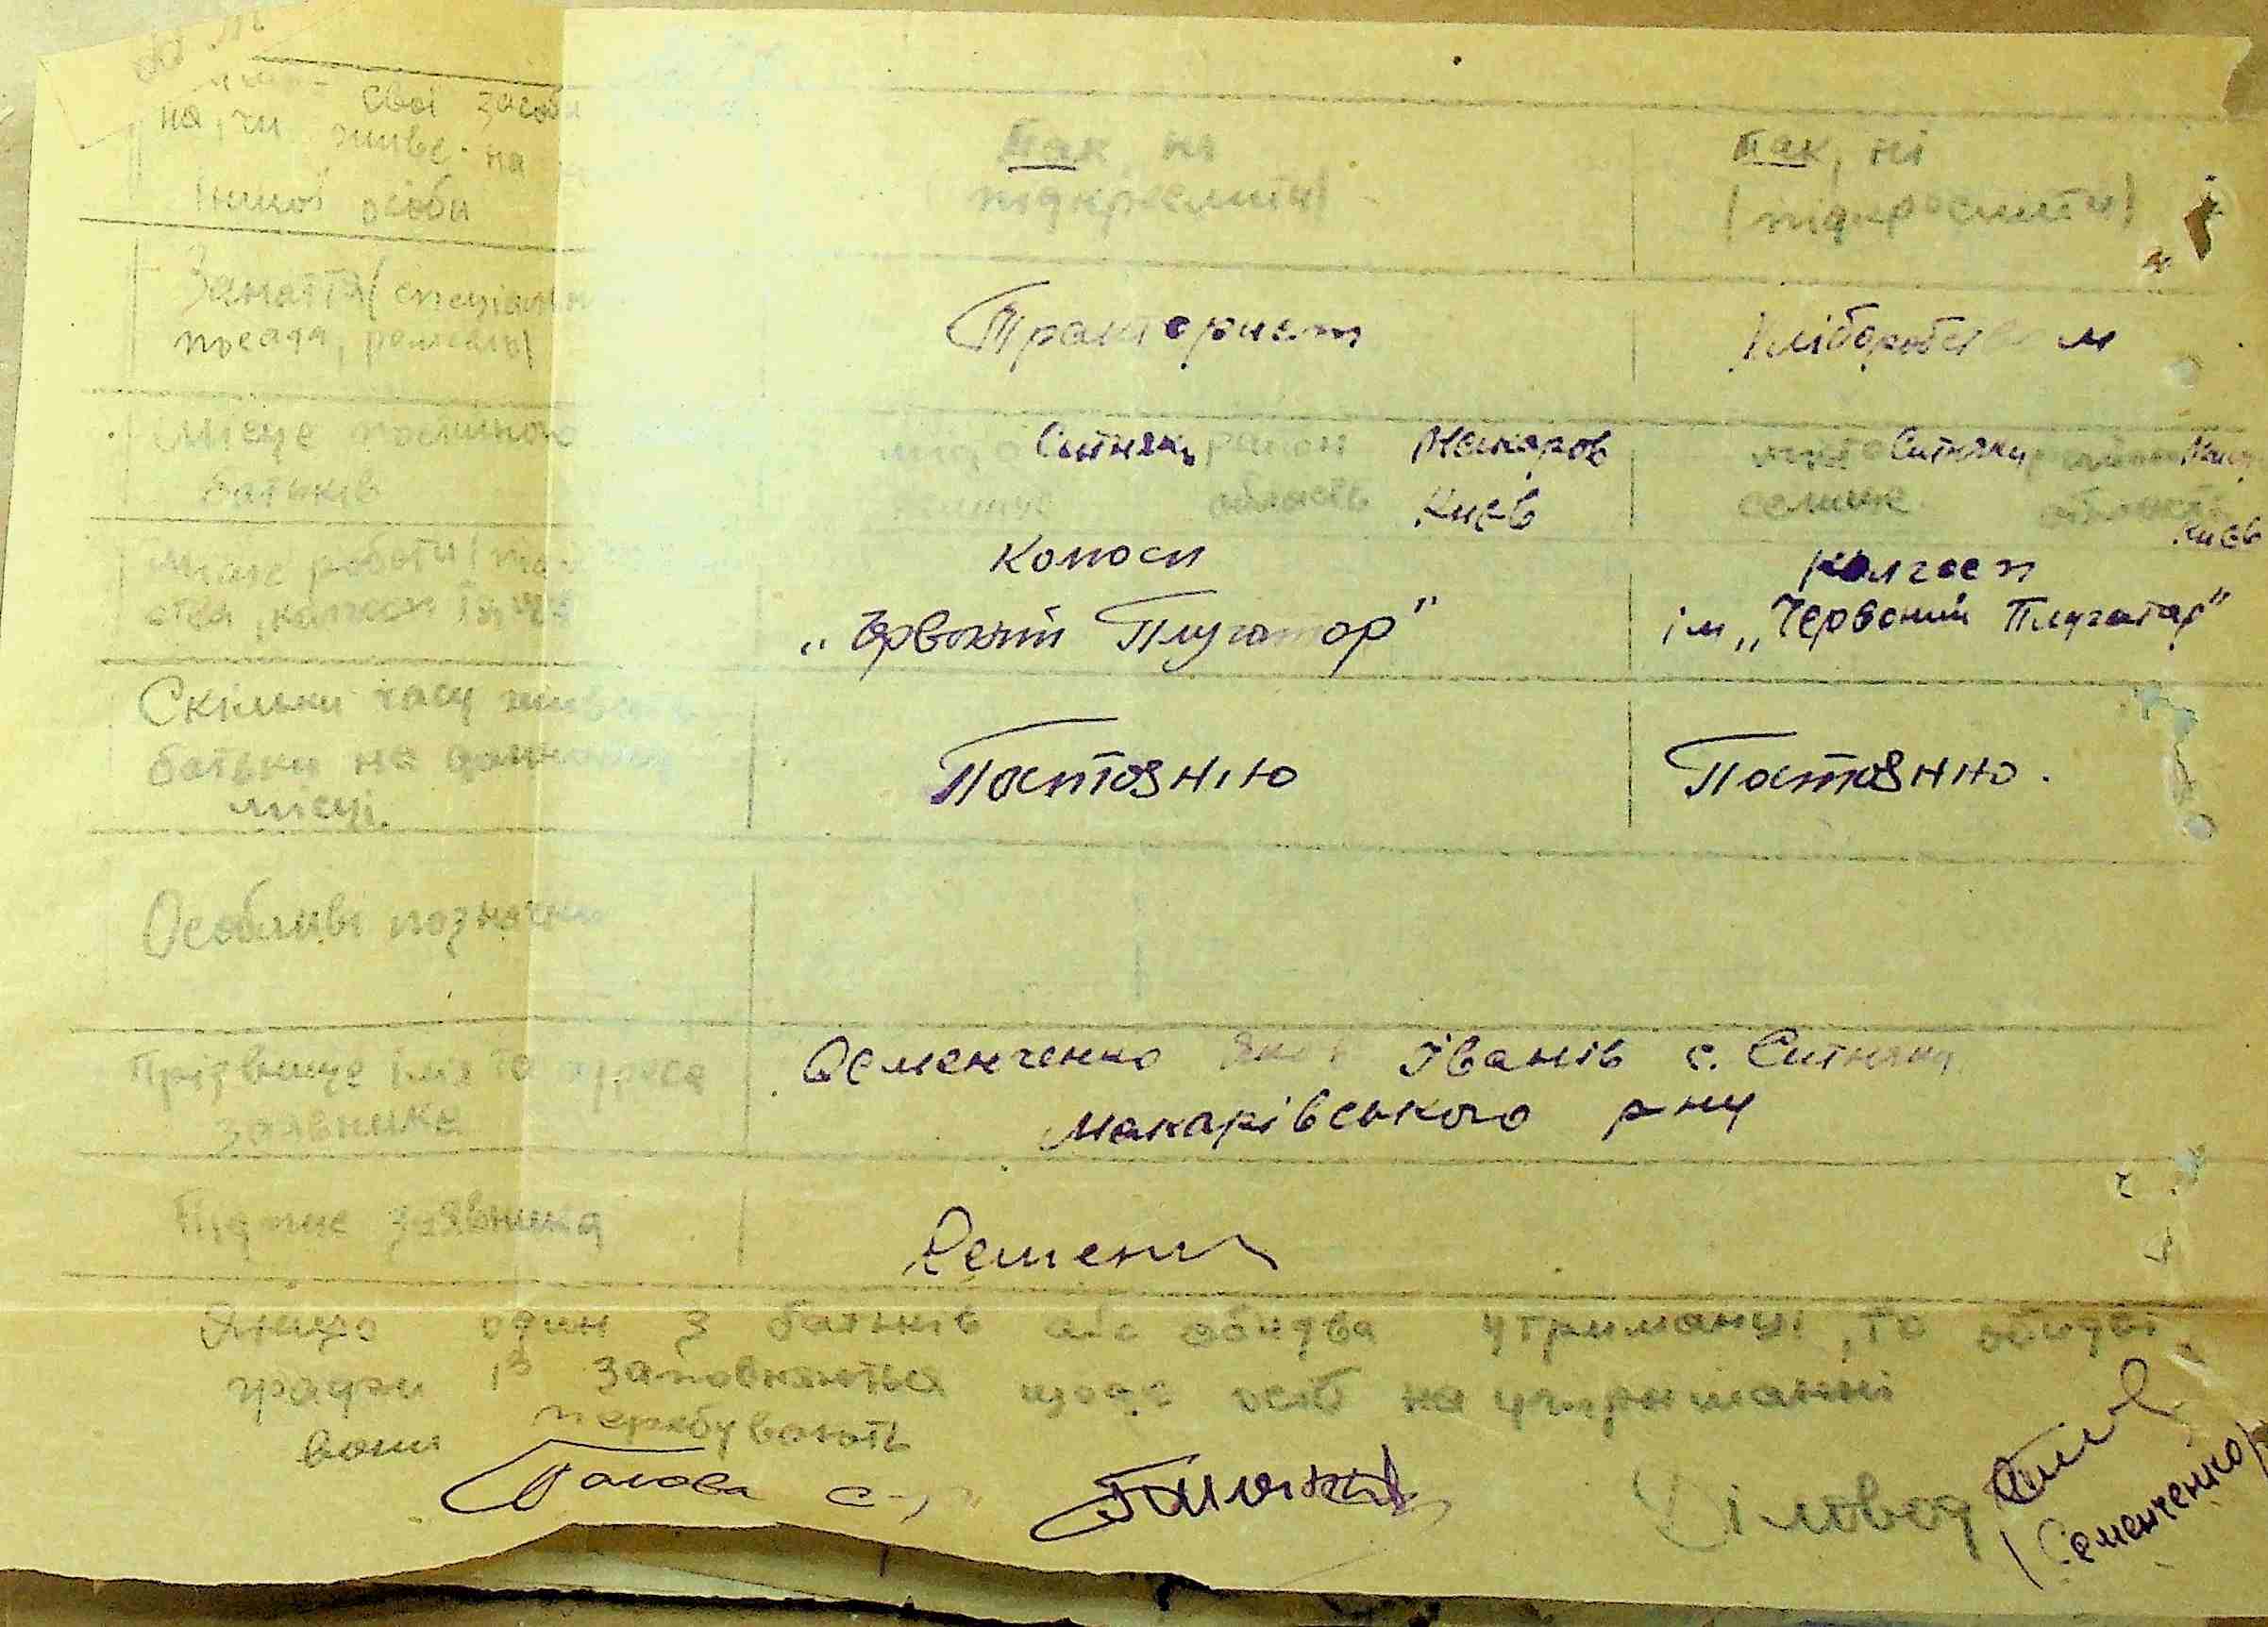 свої засоби
на, чи живе на
іншої особи
так, ні
/підкреслити/
так, ні
/підкреслити/
Заняття/спеціальн
посада, ремесло/
Тракторист
Хліборобством
Місце постійного
батьків
місто Ситняки район Макаров
селище область Київ
місто Ситняки район Мака
селище область Київ
Місце роботи
колгосп
Колгосп
„Червоний Плугатор"
колгосп
ім „Червоний Плугатар"
Скільки часу живуть
батьки на даному
місці.
Постояню
Постояню.
Особливі позначки
Прізвище імя та адреса
заявника
Семенченко Яков Іванів с. Ситняки
Макарівського р ну
Підпис заявника
Семен
Якщо один з батьків або обидва утриманці, то обидві
графи заповнюються щодо осіб на утриманні
вони перебувають
Голова с-р
Діловод
/Семенченко/